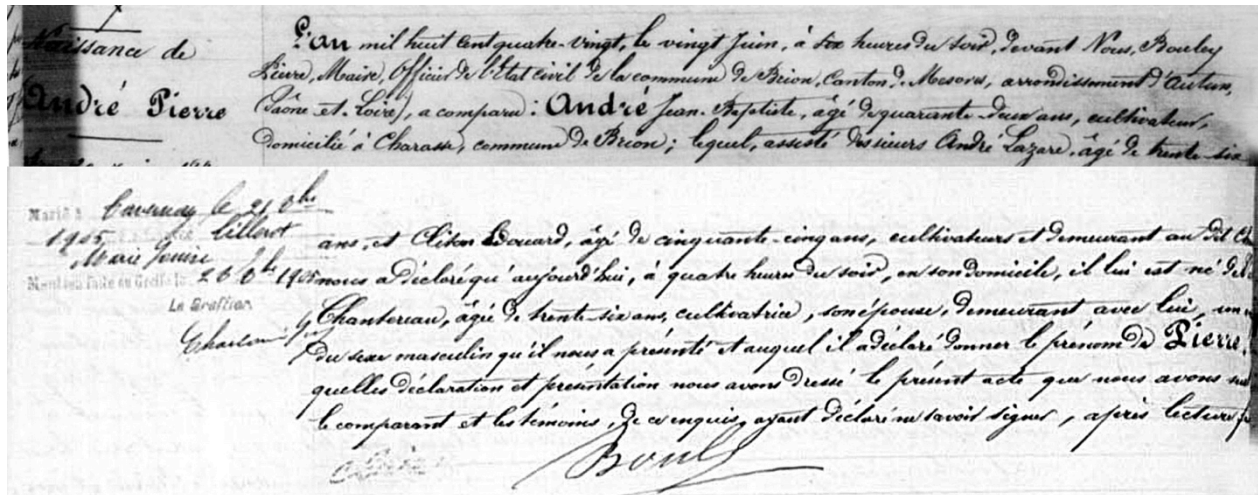 Naissance de
André Pierre
L'an mil huit cent quatre-vingt, le vingt Juin, à six heures du soir, devant Nous, Bouley
Pierre, Maire, Officier de l'Etat civil de la commune de Brion, Canton de Mesvres, arrondissement d'Autun,
(Saône-et-Loire), a comparu: André Jean-Baptiste, âgé de quarante-deux ans, cultivateur,
domicilié à Charasse, commune de Brion; lequel, assisté des sieurs André Lazare, âgé de trente-six
Marié à
le 21 8bre
1905
Marie Louise
Mention faite au Greffe le 26 8bre 1905
Le Greffier
ans, et Douard, âgé de cinquante-cinq ans, cultivateurs et demeurant au dit
nous a déclaré qu'aujourd'hui, à quatre heures du soir, en son domicile, il lui est né de
Chantereau, âgée de trente-six ans, cultivatrice, son épouse, demeurant avec lui, un
du sexe masculin qu'il nous a présenté et auquel il a déclaré donner le prénom de Pierre,
quelles déclaration et présentation nous avons dressé le présent acte que nous avons
le comparant et les témoins, de ce enquis, ayant déclaré ne savoir signer, après lecture